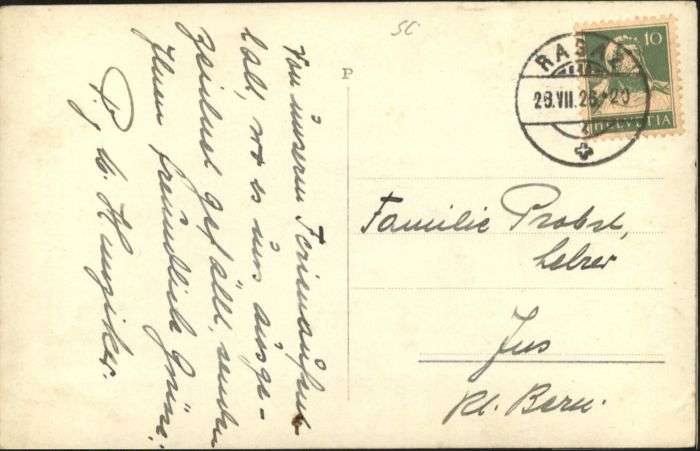 Von unserm Ferienaufent-
halt, wo es uns ausge-
zeichnet gefällt, senden
Ihnen freundliche Grüsse.
Hunziker.
P
10
RAGAZ
HELVETIA
Familie Probst,
Lehrer
Ins
Kt. Bern.